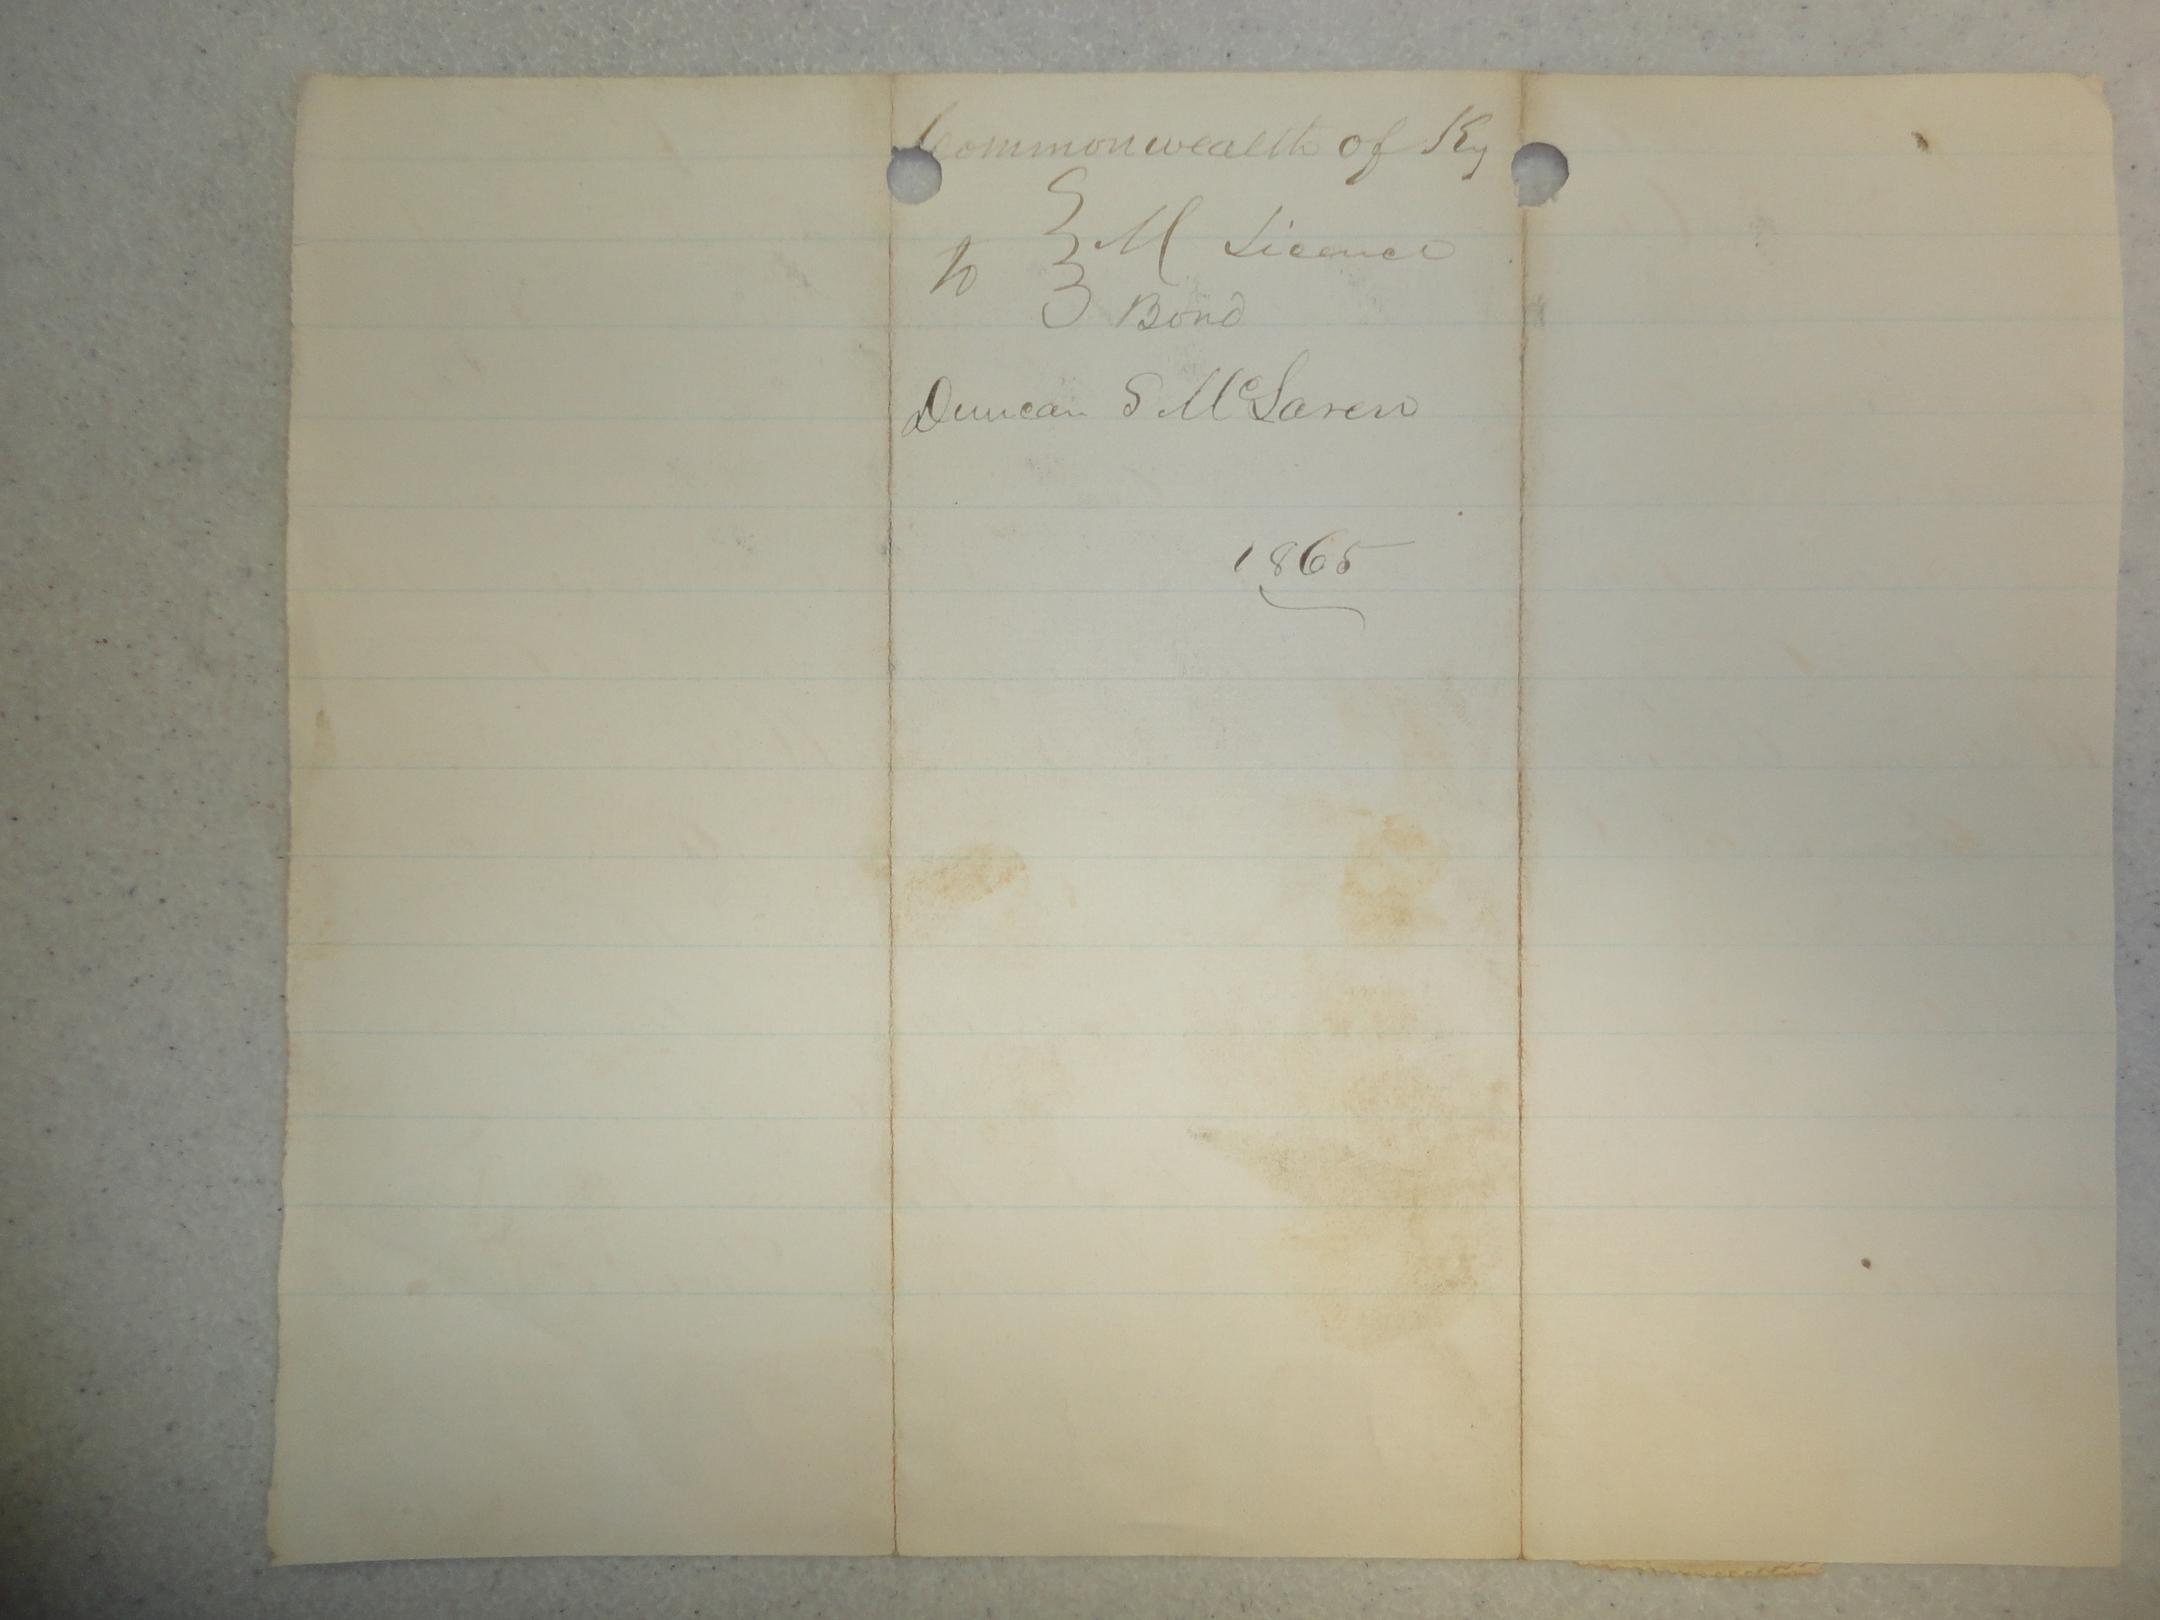 Commonwealth of Ky
to } M Licence
Bond
Duncan S McLaren
1865